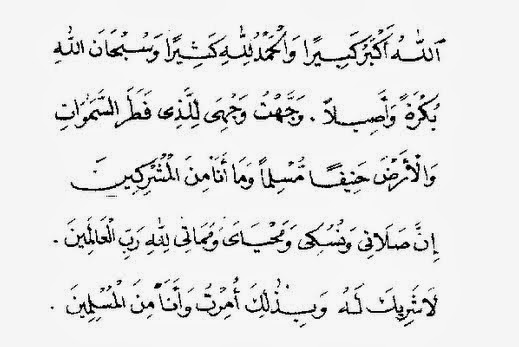 اَللهُ أَكْبَرُ كَبِيرًا وَالْحَمْدُ لِلّٰهِ كَثِيرًا وَسُبْحَانَ اللهِ
بُكْرَةً وَأَصِيلاً . وَجَّهْتُ وَجْهِيَ لِلَّذِى فَطَرَ السَّمَوَاتِ
وَالْأَرْضَ حَنِيفًا مُسْلِمًا وَمَا أَنَا مِنَ الْمُشْرِكِينَ
إِنَّ صَلَاتِى وَنُسُكِى وَمَحْيَاىَ وَمَمَاتِى لِلّٰهِ رَبِّ الْعَالَمِينَ .
لَا شَرِيكَ لَهُ وَبِذٰلِكَ أُمِرْتُ وَأَنَا مِنَ الْمُسْلِمِينَ .